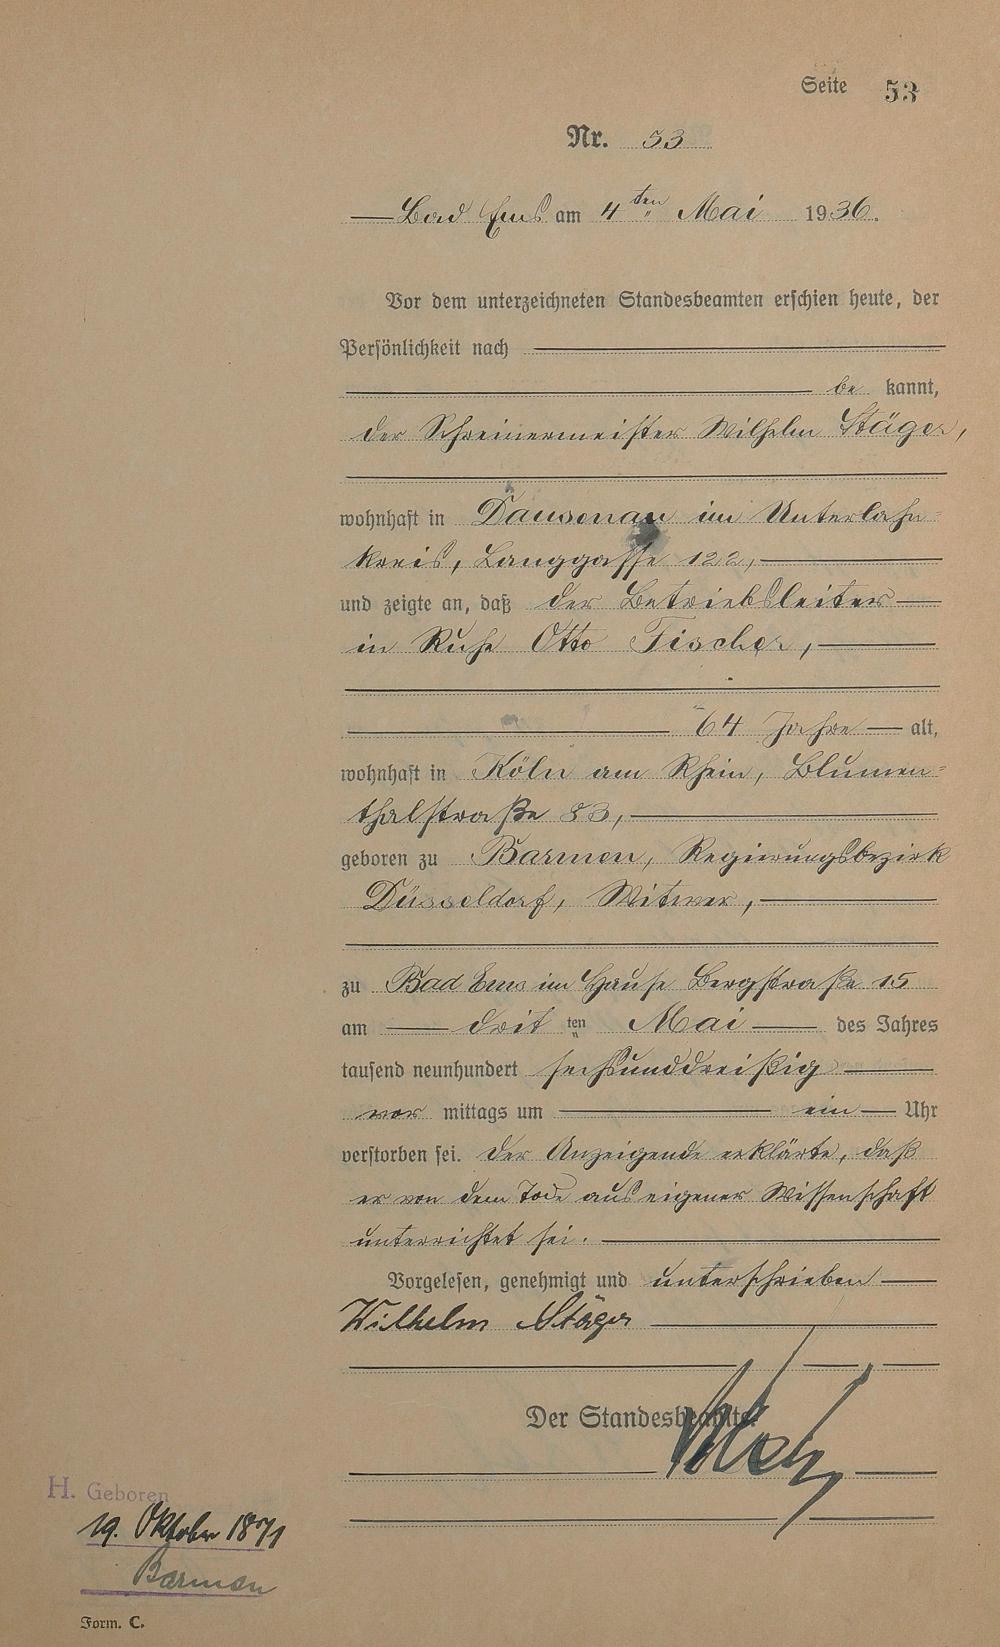 Seite 53
Nr. 53
Bad Ems am 4ten Mai 1936.
Vor dem unterzeichneten Standesbeamten erschien heute, der
Persönlichkeit nach
be kannt,
der Schreinermeister Wilhelm Stäger,
wohnhaft in Dausenau im Unterlahn-
kreis, Langgasse 122,
und zeigte an, daß der Betriebsleiter
in Ruhe Otto Fischer,
64 Jahre alt,
wohnhaft in Köln am Rhein, Blumen-
thalstraße 83,
geboren zu Barmen, Regierungsbezirk
Düsseldorf, Witwer,
zu Bad Ems im Hause Bergstraße 15
am drit ten Mai des Jahres
tausend neunhundert sechsunddreißig
vor mittags um ein Uhr
verstorben sei. Der Anzeigende erklärte, daß
er von dem Tode aus eigener Wissenschaft
unterrichtet sei.
Vorgelesen, genehmigt und unterschrieben
Wilhelm Stäger
Der Standesbeamte.
H. Geboren
19. Oktober 1871
Barmen
Form. C.